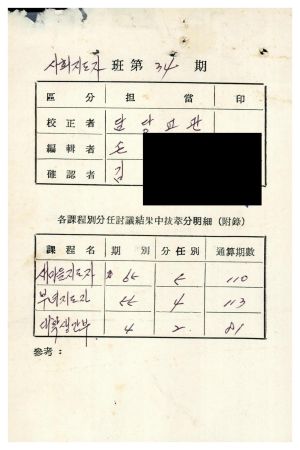 사회지도자 班 第 34 期
區 分 担 當 印
校正者 담 당 교 관
編輯者 손
確認者 김
各課程別分任討議結果中抜萃分明細 (附錄)
課程名 期 別 分任別 通算期數
새마을지도자 66 5 110
부녀지도자 44 4 113
대학생간부 4 2 81
参考 :